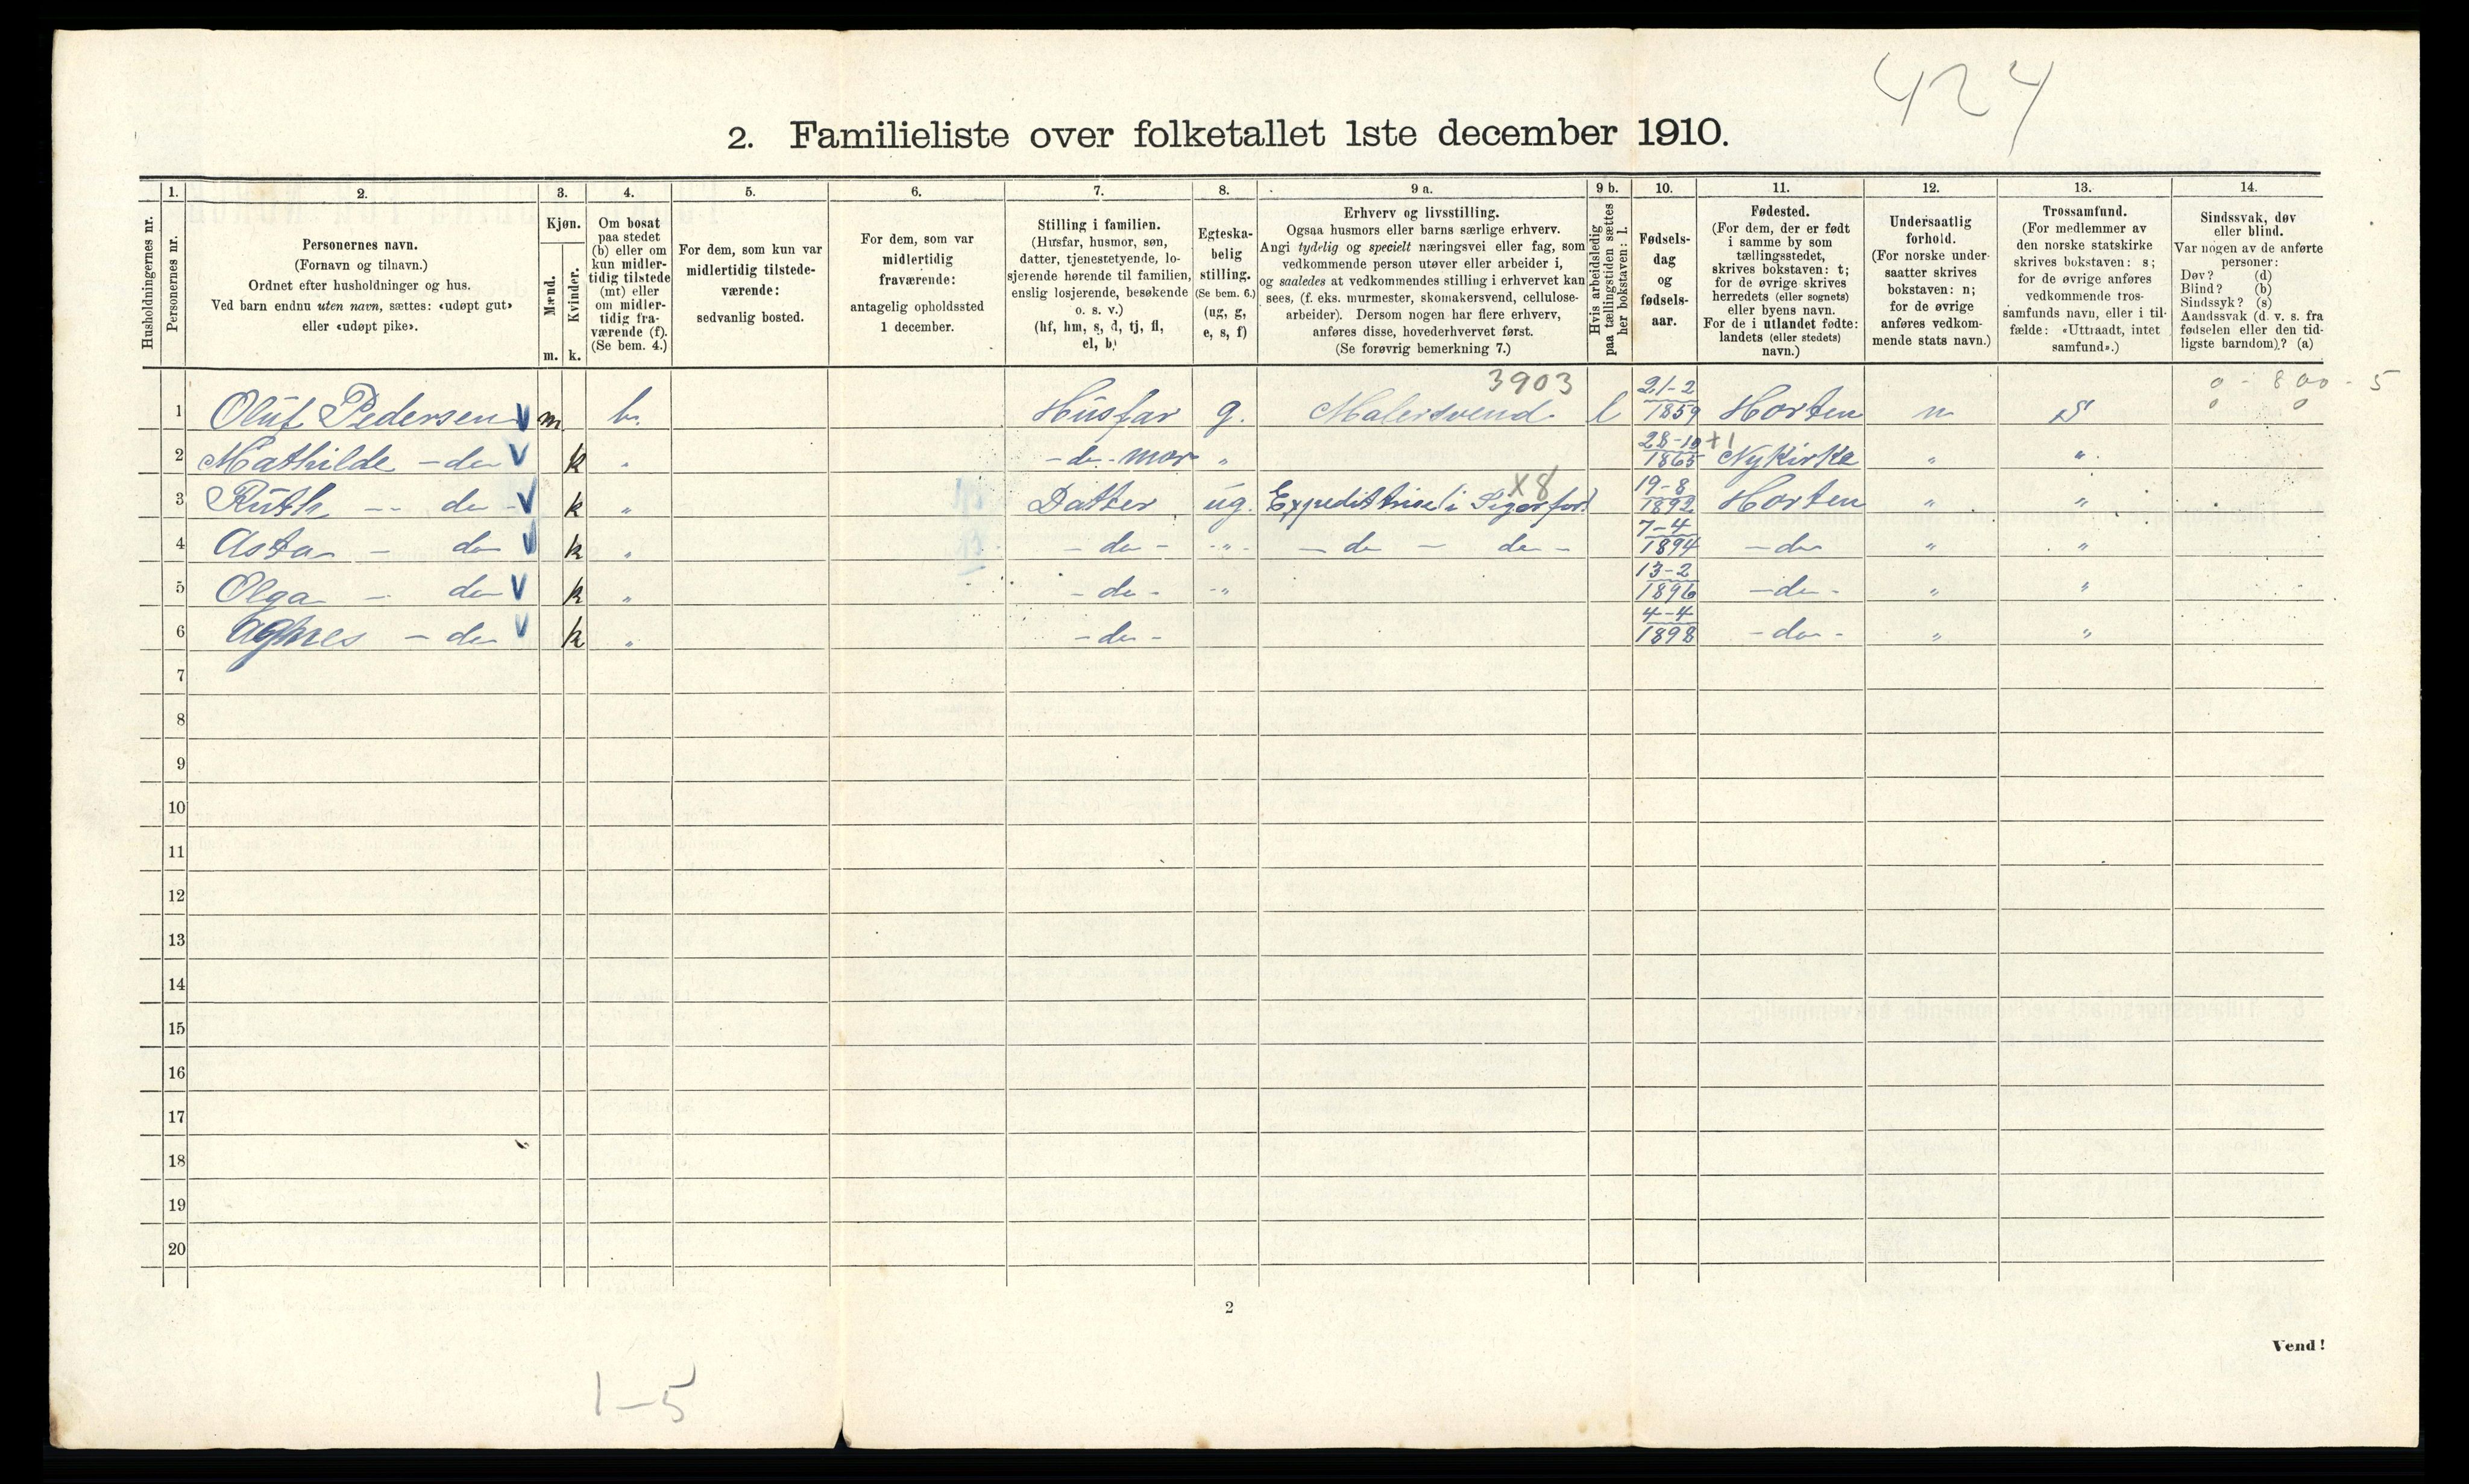 424
2. Familieliste over folketallet 1ste december 1910.
Husholdningernes nr.
1. Personernes nr.
2. Personernes navn. (Fornavn og tilnavn.) Ordnet efter husholdninger og hus. Ved barn endnu uten navn, sættes: «udøpt gut» eller «udøpt pike».
3. Kjøn. Mænd. m. Kvinder. k.
4. Om bosat paa stedet (b) eller om kun midlertidig tilstede (mt) eller om midlertidig fraværende (f). (Se bem. 4.)
5. For dem, som kun var midlertidig tilstedeværende: sedvanlig bosted.
6. For dem, som var midlertidig fraværende: antagelig opholdssted 1 december.
7. Stilling i familien. (Husfar, husmor, søn, datter, tjenestetyende, losjerende hørende til familien, enslig losjerende, besøkende o. s. v.) (hf, hm, s, d, tj, fl, el, b)
8. Egteskabelig stilling. (Se bem. 6.) (ug, g, e, s, f)
9 a. Erhverv og livsstilling. Ogsaa husmors eller barns særlige erhverv. Angi tydelig og specielt næringsvei eller fag, som vedkommende person utøver eller arbeider i, og saaledes at vedkommendes stilling i erhvervet kan sees, (f. eks. murmester, skomakersvend, cellulosearbeider). Dersom nogen har flere erhverv, anføres disse, hovederhvervet først. (Se forøvrig bemerkning 7.)
9 b. Hvis arbeidsledig paa tællingstiden sættes her bokstaven: l.
10. Fødselsdag og fødselsaar.
11. Fødested. (For dem, der er født i samme by som tællingsstedet, skrives bokstaven: t; for de øvrige skrives herredets (eller sognets) eller byens navn. For de i utlandet fødte: landets (eller stedets) navn.)
12. Undersaatlig forhold. (For norske undersaatter skrives bokstaven: n; for de øvrige anføres vedkommende stats navn.)
13. Trossamfund. (For medlemmer av den norske statskirke skrives bokstaven: s; for de øvrige anføres vedkommende trossamfunds navn, eller i tilfælde: «Uttraadt, intet samfund».)
14. Sindssvak, døv eller blind. Var nogen av de anførte personer: Døv? (d) Blind? (b) Sindssyk? (s) Aandssvak (d. v. s. fra fødselen eller den tidligste barndom)? (a)
3903 0 - 800 - 5
0 0
1 Oluf Pedersen V m b. Husfar g. Malersvend l 21-2 1859 Horten n S
2 Mathilde - do V k " - do - mor " 28-10 1865 +1 Nykirke " "
3 Ruth - do - V k " Datter ug. Expeditrise (i X8 19-8 1892 Horten " "
4 Asta - do V k " - do - - " - - do - do - 7-4 1894 - do " "
5 Olga - do V k " - do - - " 13-2 1896 - do - " "
6 Aghnes - do V k " - do - 4-4 1898 - do - " "
7
8
9
10
11
12
13
14
15
16
17
18
19
20
2
Vend!
1-5